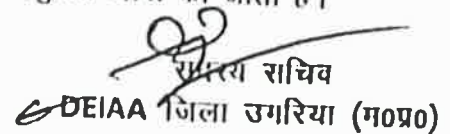 सदस्य सचिव
DEIAA जिला उमरिया (म०प्र०)